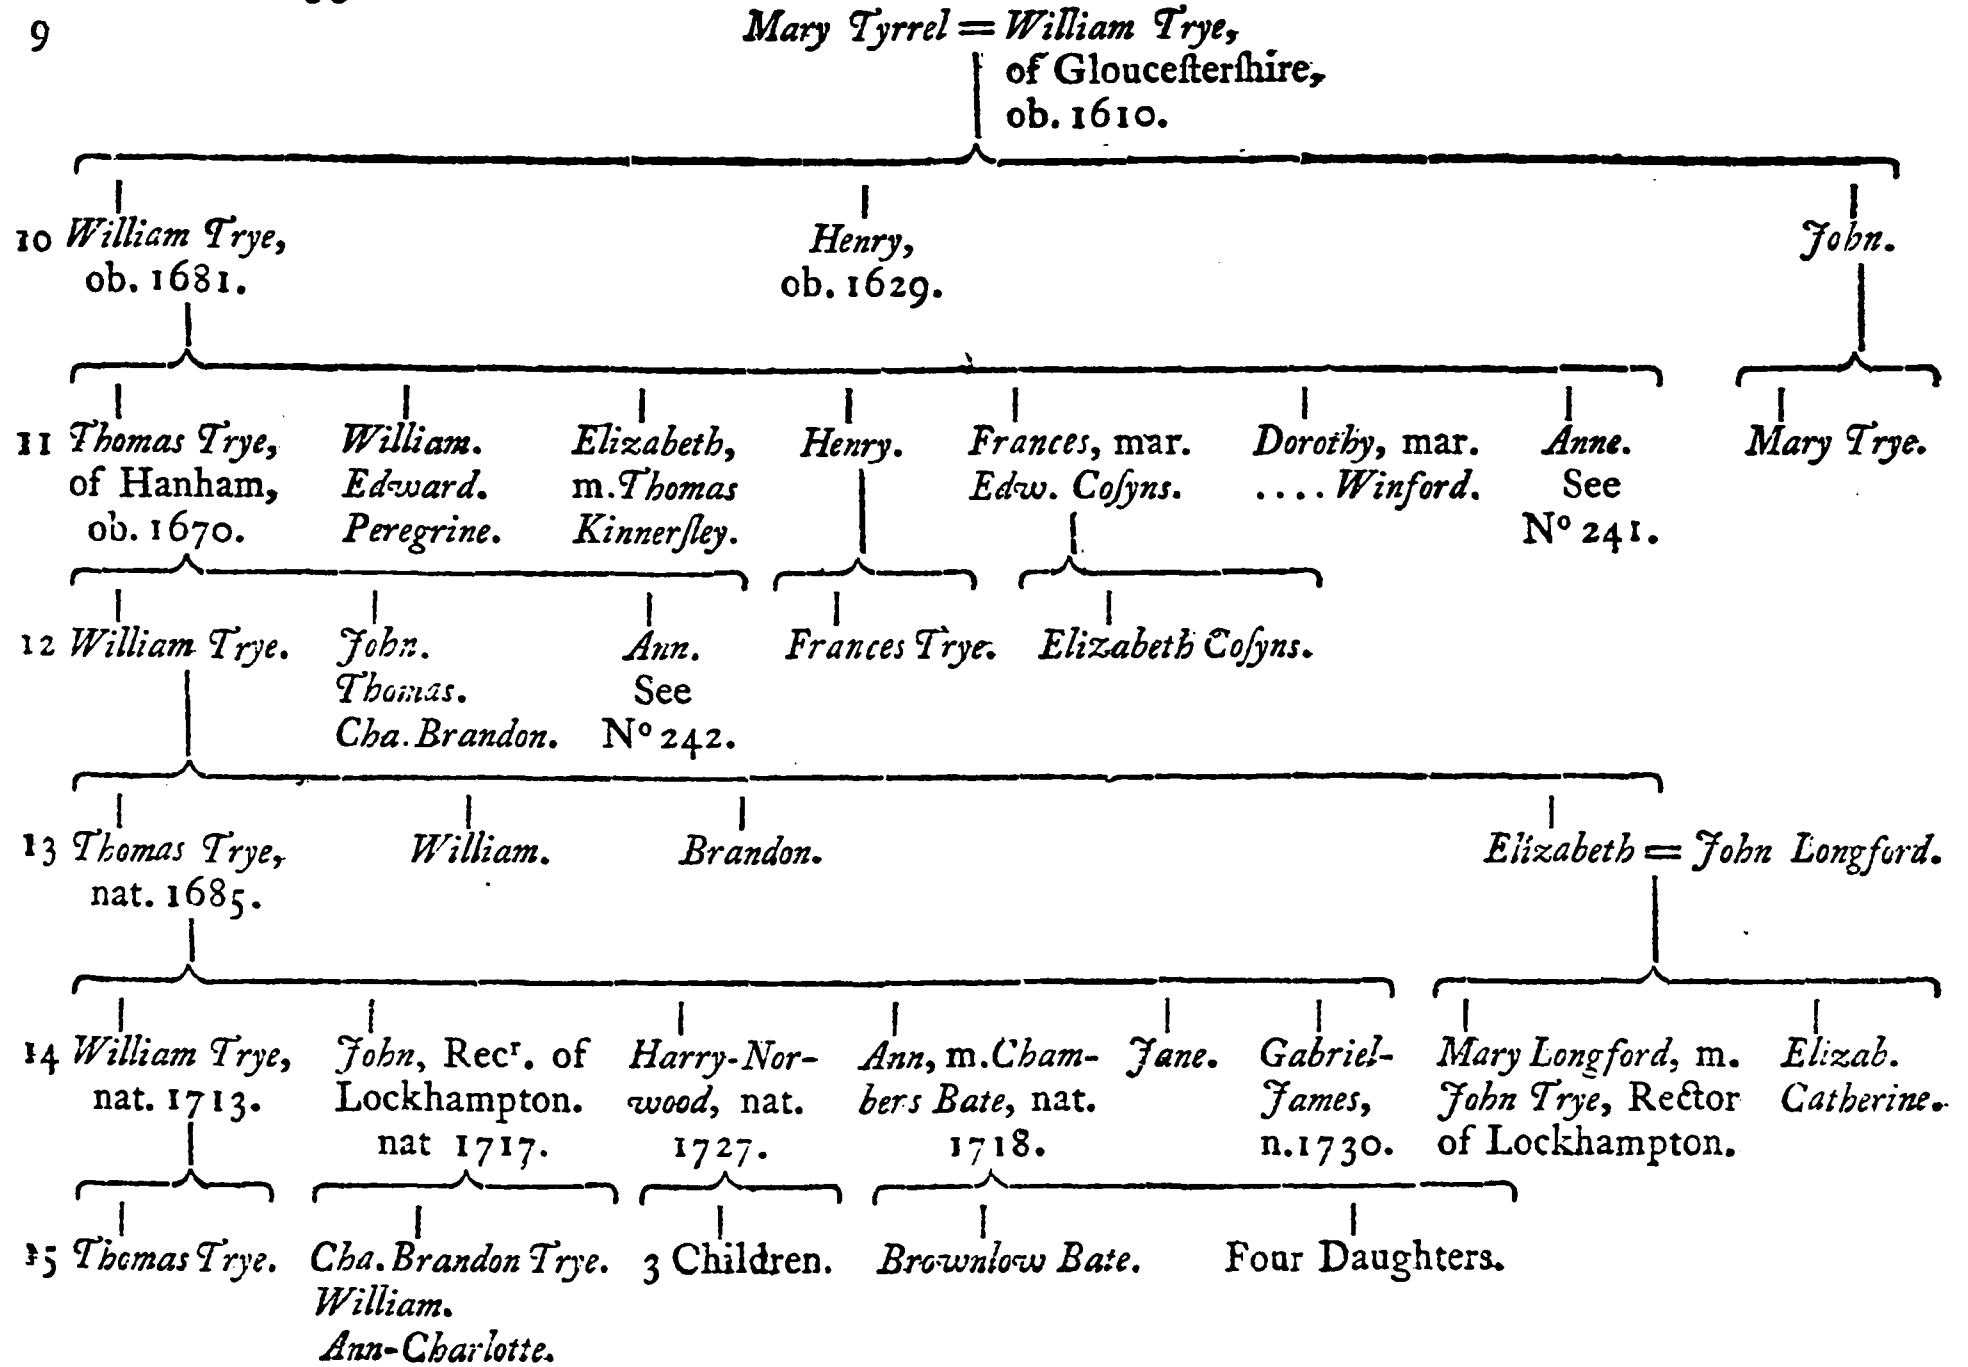 9
Mary Tyrrel = William Trye,
of Glouceſterſhire,
ob. 1610.
10 William Trye,
ob. 1681.
Henry,
ob. 1629.
John.
11 Thomas Trye,
of Hanham,
ob. 1670.
William.
Edward.
Peregrine.
Elizabeth,
m. Thomas
Kinnerſley.
Henry.
Frances, mar.
Edw. Coſyns.
Dorothy, mar.
.... Winford.
Anne.
See
Nº 241.
Mary Trye.
12 William Trye.
John.
Thomas.
Cha. Brandon.
Ann.
See
Nº 242.
Frances Trye.
Elizabeth Coſyns.
13 Thomas Trye,
nat. 1685.
William.
Brandon.
Elizabeth = John Longford.
14 William Trye,
nat. 1713.
John, Recʳ. of
Lockhampton.
nat 1717.
Harry-Nor-
wood, nat.
1727.
Ann, m. Cham-
bers Bate, nat.
1718.
Jane.
Gabriel-
James,
n. 1730.
Mary Longford, m.
John Trye, Rector
of Lockhampton.
Elizab.
Catherine.
15 Thomas Trye.
Cha. Brandon Trye.
William.
Ann-Charlotte.
3 Children.
Brownlow Bate.
Four Daughters.